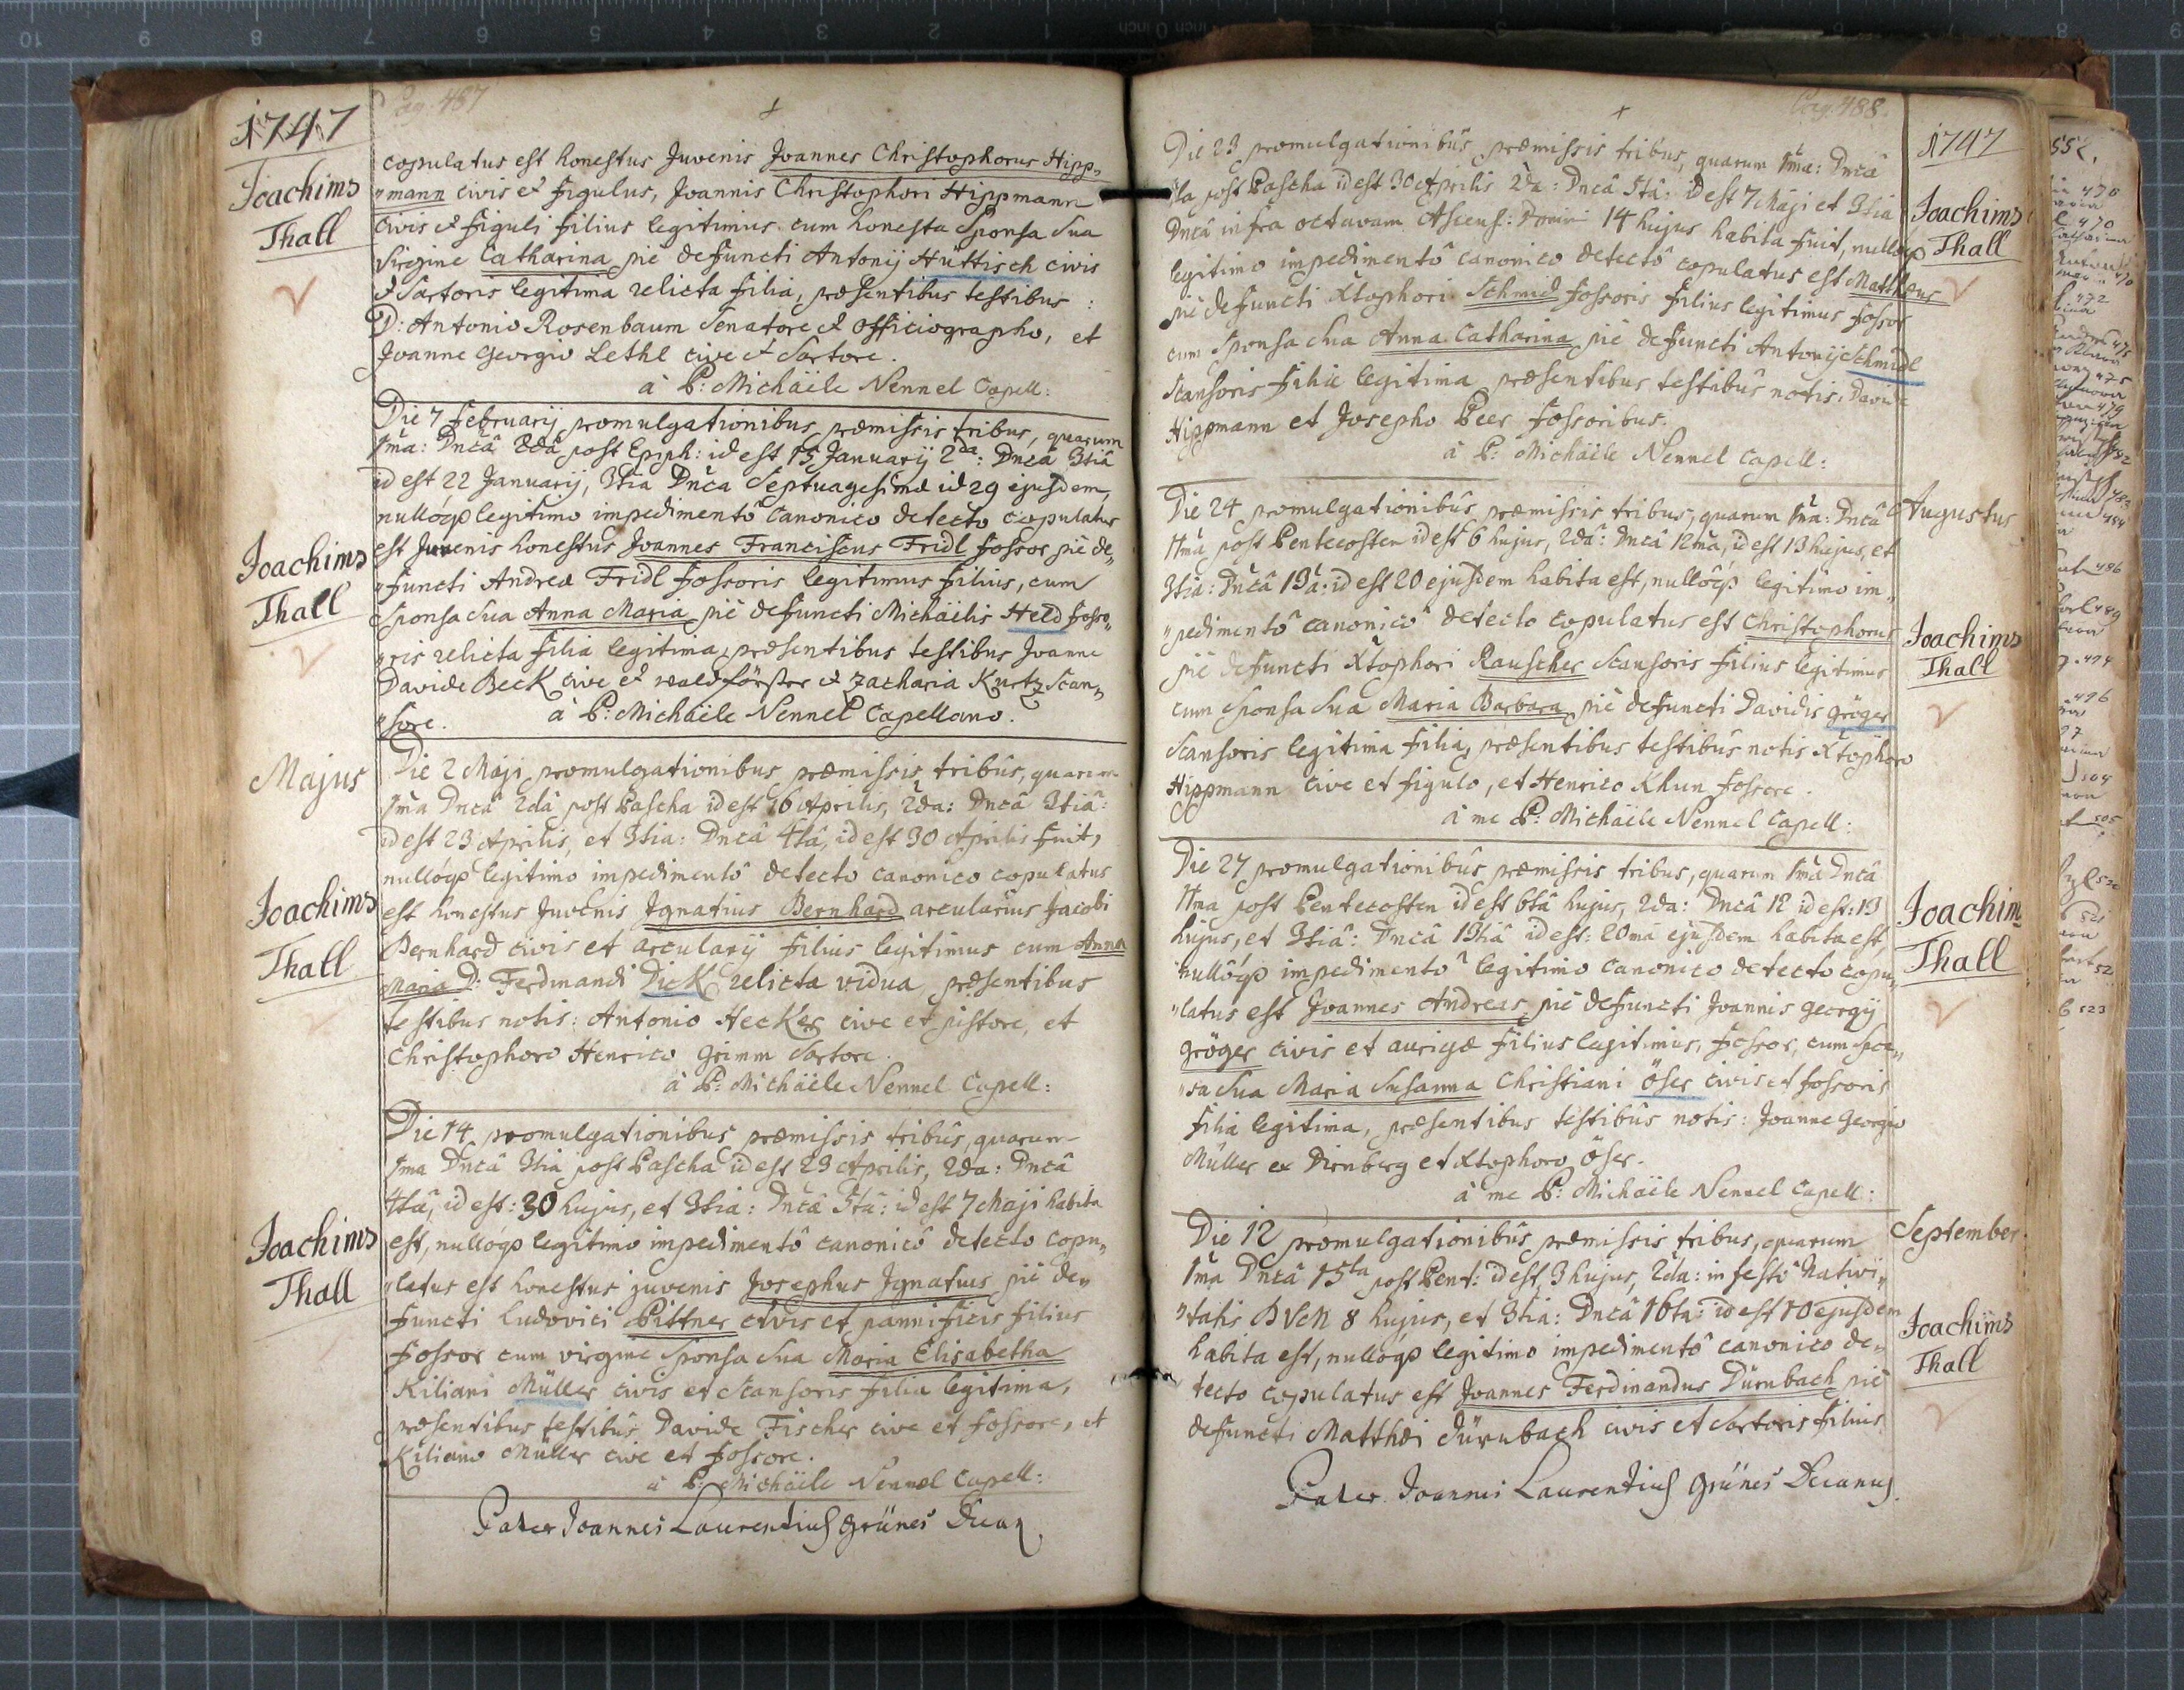 1747
Pag. 487
Joachims
Thall
copulatus est honestus Juvenis Joannes Christophorus Hipp„
„mann civis et figulus, Joannis Christophori Hippmann
civis et figuli filius legitimus cum honesta Sponsa sua
Virgine Catharina pie defuncti Antonij Hüttisch civis
et Sartoris legitima relicta filia, præsentibus testibus :
D: Antonio Rosenbaum Senatore et Officiographo, et
Joanne Georgio Lethl cive et Sartore.
à P: Michäele Nennel Capell:
Die 7 Februarij promulgationibus præmissis tribus, quarum
1ma: Dncâ 2dâ post Epiph: id est 15 Januarij 2da: Dncâ 3tiâ
id est 22 Januarij, 3tia Dnca Septuagesimæ id 29 ejusdem,
nullóqɜ legitimo impedimentô canonico detecto copulatus
Joachims
Thall
est Juvenis honestus Joannes Franciscus Fridl fossor pie de„
„functi Andreæ Fridl fossoris legitimus filius, cum
Sponsa sua Anna Maria pie defuncti Michäelis Held fosso„
„ris relicta filia legitima, præsentibus testibus Joanne
Davide Beck cive et waldförster et Zacharia Kurtz Scan„
„sore. à P: Michäele Nennel Capellano.
Majus
Die 2 Maji promulgationibus præmissis tribûs, quarum
1ma Dncâ 2dâ post Pascha id est 16 Aprilis, 2da: Dncâ 3tiâ:
id est 23 Aprilis, et 3tia: Dncâ 4tâ, id est 30 Aprilis fuit,
nullóqɜ legitimo impedimentô detecto canonico copulatus
Joachims
Thall
est honestus Juvenis Ignatius Bernhard arcularius Jacobi
Bernhard civis et arcularij filius legitimus cum Anna
Maria D: Ferdinandi Dick relicta vidua præsentibus
testibus notis: Antonio Hecker cive et pistore, et
Christophoro Henrico Grimm Sartore.
à P: Michäele Nennel Capell:
Die 14 promulgationibus præmissis tribûs, quarum
1ma Dncâ 3tia post Pascha id est 23 Aprilis, 2da: Dncâ
4tâ, id est: 30 hujus, et 3tia: Dncâ 5tâ: id est 7 Maji habita
Joachims
Thall
est, nullóqɜ legitimo impedimentô canonicô detecto copu„
„latus est honestus juvenis Josephus Ignatius pie de„
functi Ludovici Pittner civis et pannificis filius
fossor cum virgine Sponsa sua Maria Elisabetha
Kiliani Müller civis et Scansoris filia legitima,
præsentibus testibus Davide Fischer cive et fossore, et
Kiliano Müller cive et fossore.
à P: Michäele Nennel Capell:
Pater Joannes Laurentius Grünes Decan.
Pag. 488.
1747
Joachims
Thall
Die 23 promulgationibûs præmissis tribus, quarum 1ma: Dncâ
4ta post Pascha id est 30 Aprilis 2da: Dncâ 5tâ: id est 7 Maji et 3tia
Dncâ infra octavam Ascens: Domini 14 hujus habita fuit, nullóqɜ
legitimo impedimentô canonico detectô copulatus est Matthæus
pie defuncti Xtophori Schmid fossoris filius legitimus fossor
cum Sponsa sua Anna Catharina pie defuncti Antonij Schmidl
Scansoris filia legitima præsentibus testibûs notis: Davide
Hippmann et Josepho Peer fossoribus.
à P: Michäele Nennel Capell:
Augustus
Die 24 promulgationibûs præmissis tribus, quarum 1ma: Dncâ
11ma post Pentecosten id est 6 hujus, 2da: Dncâ 12ma, id est 13 hujus, et
3tia: Dncâ 13a: id est 20 ejusdem habita est, nullôqɜ legitimo im„
Joachims
Thall
„pedimentô canonicô detecto copulatus est Christophorus
pie defuncti Xtophori Rauscher Scansoris filius legitimus
cum Sponsa sua Maria Barbara pie defuncti Davidis Gröger
Scansoris legitima filia, præsentibus testibûs notis Xtophoro
Hippmann cive et figulo, et Henrico Khun fossore.
à me P: Michäele Nennel Capell:
Die 27 promulgationibûs præmissis tribus, quarum 1ma Dncâ
Joachim
Thall
11ma post Pentecosten id est 6tâ hujus, 2da: Dncâ 12 id est: 13
hujus, et 3tiâ: Dncâ 13tiâ id est: 20ma ejusdem habita est,
nullôqɜ impedimentô legitimo canonico detecto copu„
„latus est Joannes Andreas pie defuncti Joannis Georgij
Gröger civis et aurigæ filius legitimus, fossor, cum spon„
„sa sua Maria Susanna Christiani Öser civis et fossoris
filia legitima, præsentibus testibûs notis: Joanne Georgio
Müller ex Dirnberg et Xtophoro Öser.
à me P: Michäele Nennel Capell:
September.
Die 12 promulgationibûs præmissis tribus, quarum
1ma Dncâ 15ta post Pent: id est 3 hujus, 2da: in festô Nativi„
„tatis BVM 8 hujus, et 3tia: Dncâ 16ta: id est 10 ejusdem
Joachims
Thall
habita est, nullóqɜ legitimo impedimentô canonico de„
tecto copulatus est Joannes Ferdinandus Dürnbach pie
defuncti Matthæi Dürnbach civis et Sartoris filius
Pater Joannes Laurentius Grünes Decanus.